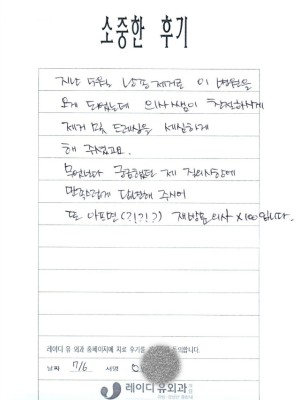 소중한 후기
지난 5월, 낭종제거로 이 병원을
오게 되었는데 의사쌤이 친절하시게
제거 및 드레싱을 세심하게
해 주셨고요.
무엇보다 궁금했던 제 질의사항에
만족스럽게 답변해 주시어
또 아프면(?!?!?) 재방문의사 x100입니다.
레이디 유 외과 홈페이지에 치료 후기를
동의합니다.
날짜 7/6 서명
레이디유외과